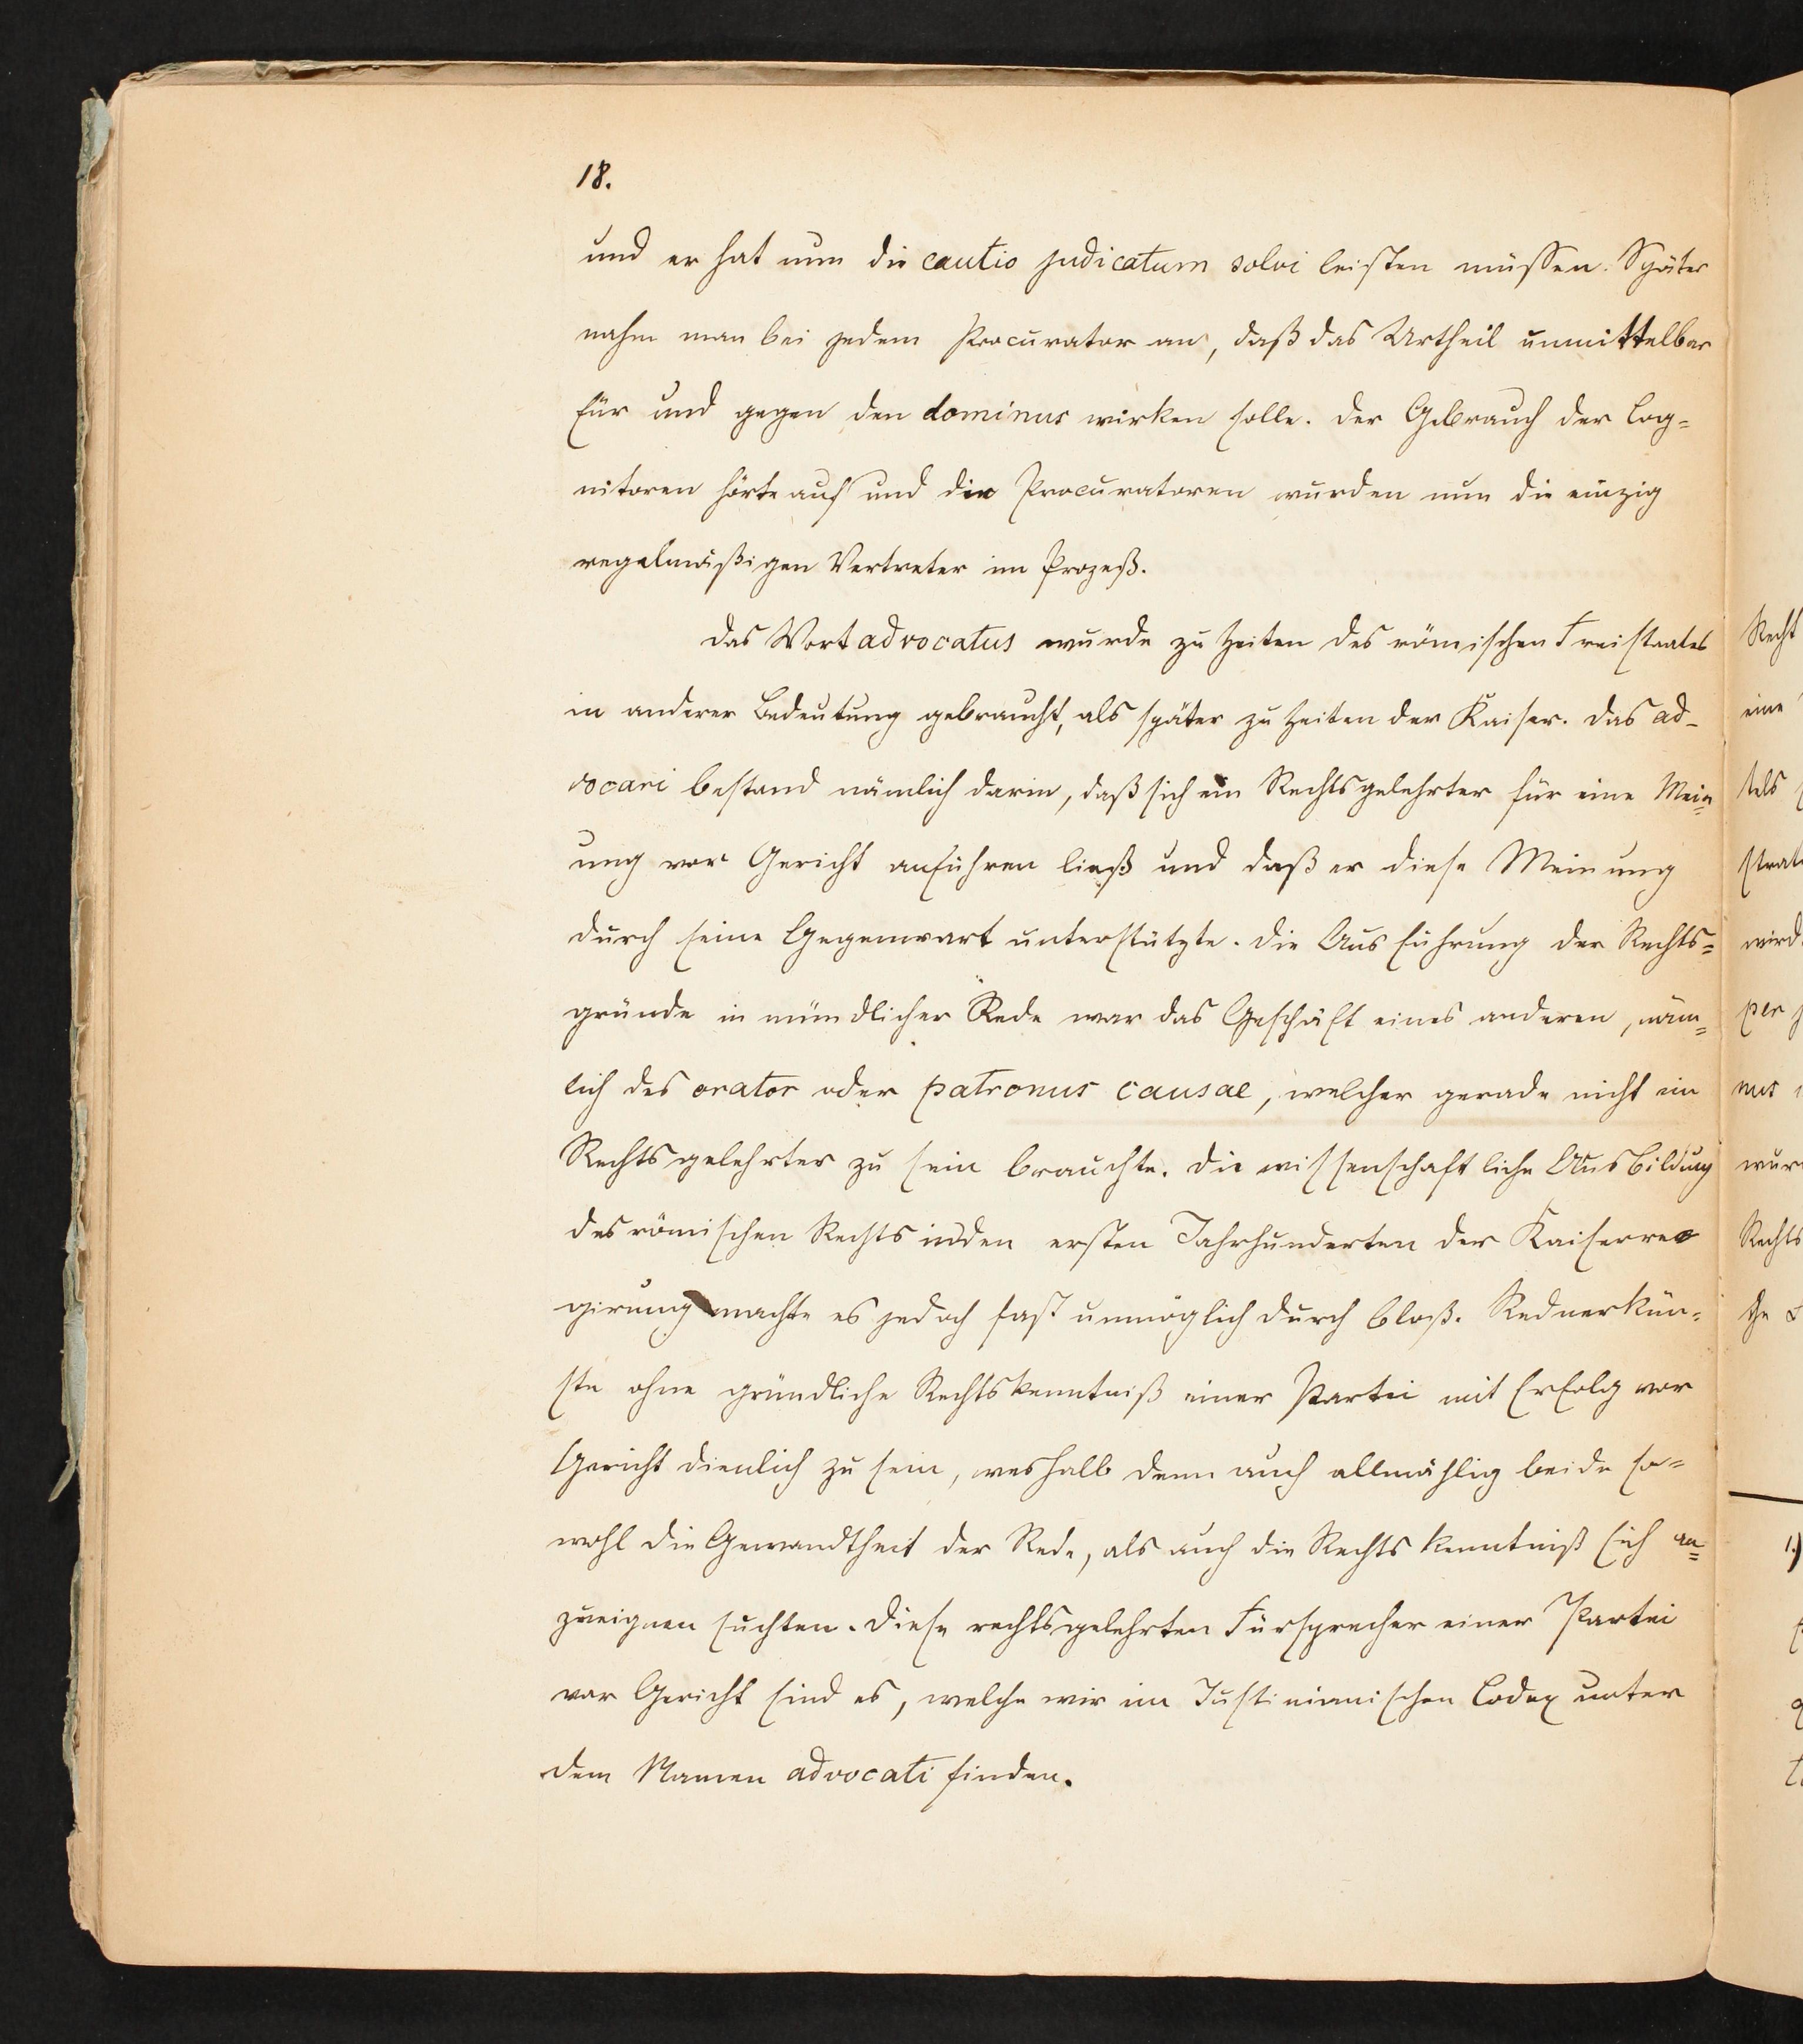 18.
und er hat nun die cautio judicatum solvi leisten müssen. Später
nahm man bei jedem Procurator an, daß das Urtheil unmittelbar
für und gegen den dominus wirken solle. Der Gebrauch der Cog=
nitoren hörte auf und die Procuratoren wurden nun die einzig
regelmäßigen Vertreter im Prozeß.
Das Wort advocatus wurde zu Zeiten des römischen Freistaates
in anderer Bedeutung gebraucht, als später zu Zeiten der Kaiser. Das ad-
vocari bestand nämlich darin, daß sich ein Rechtsgelehrter für eine Mein=
ung vor Gericht anführen ließ und daß er diese Meinung
durch seine Gegenwart unterstützte. Die Ausführung der Rechts=
gründe in mündlicher Rede war das Geschäft eines anderen, näm=
lich des orator oder patronus causae, welcher gerade nicht ein
Rechtsgelehrter zu sein brauchte. Die wissenschaftliche Ausbildung
des römischen Rechts in den ersten Jahrhunderten der Kaiserre
girung machte es jedoch fast unmöglich durch bloß. Rednerkün=
ste ohne gründliche Rechtskenntniß einer Partei mit Erfolg vor
Gericht dienlich zu sein, weshalb denn auch allmählig beide so=
wohl die Gewandtheit der Rede, als auch die Rechtskenntniß sich an=
zueignen suchten. Diese rechtsgelehrten Fürsprecher einer Partei
vor Gericht sind es, welche wir im Justinianischen Codex unter
dem Namen advocati finden.
Recht
eine
wird
per
Rechts
1.)